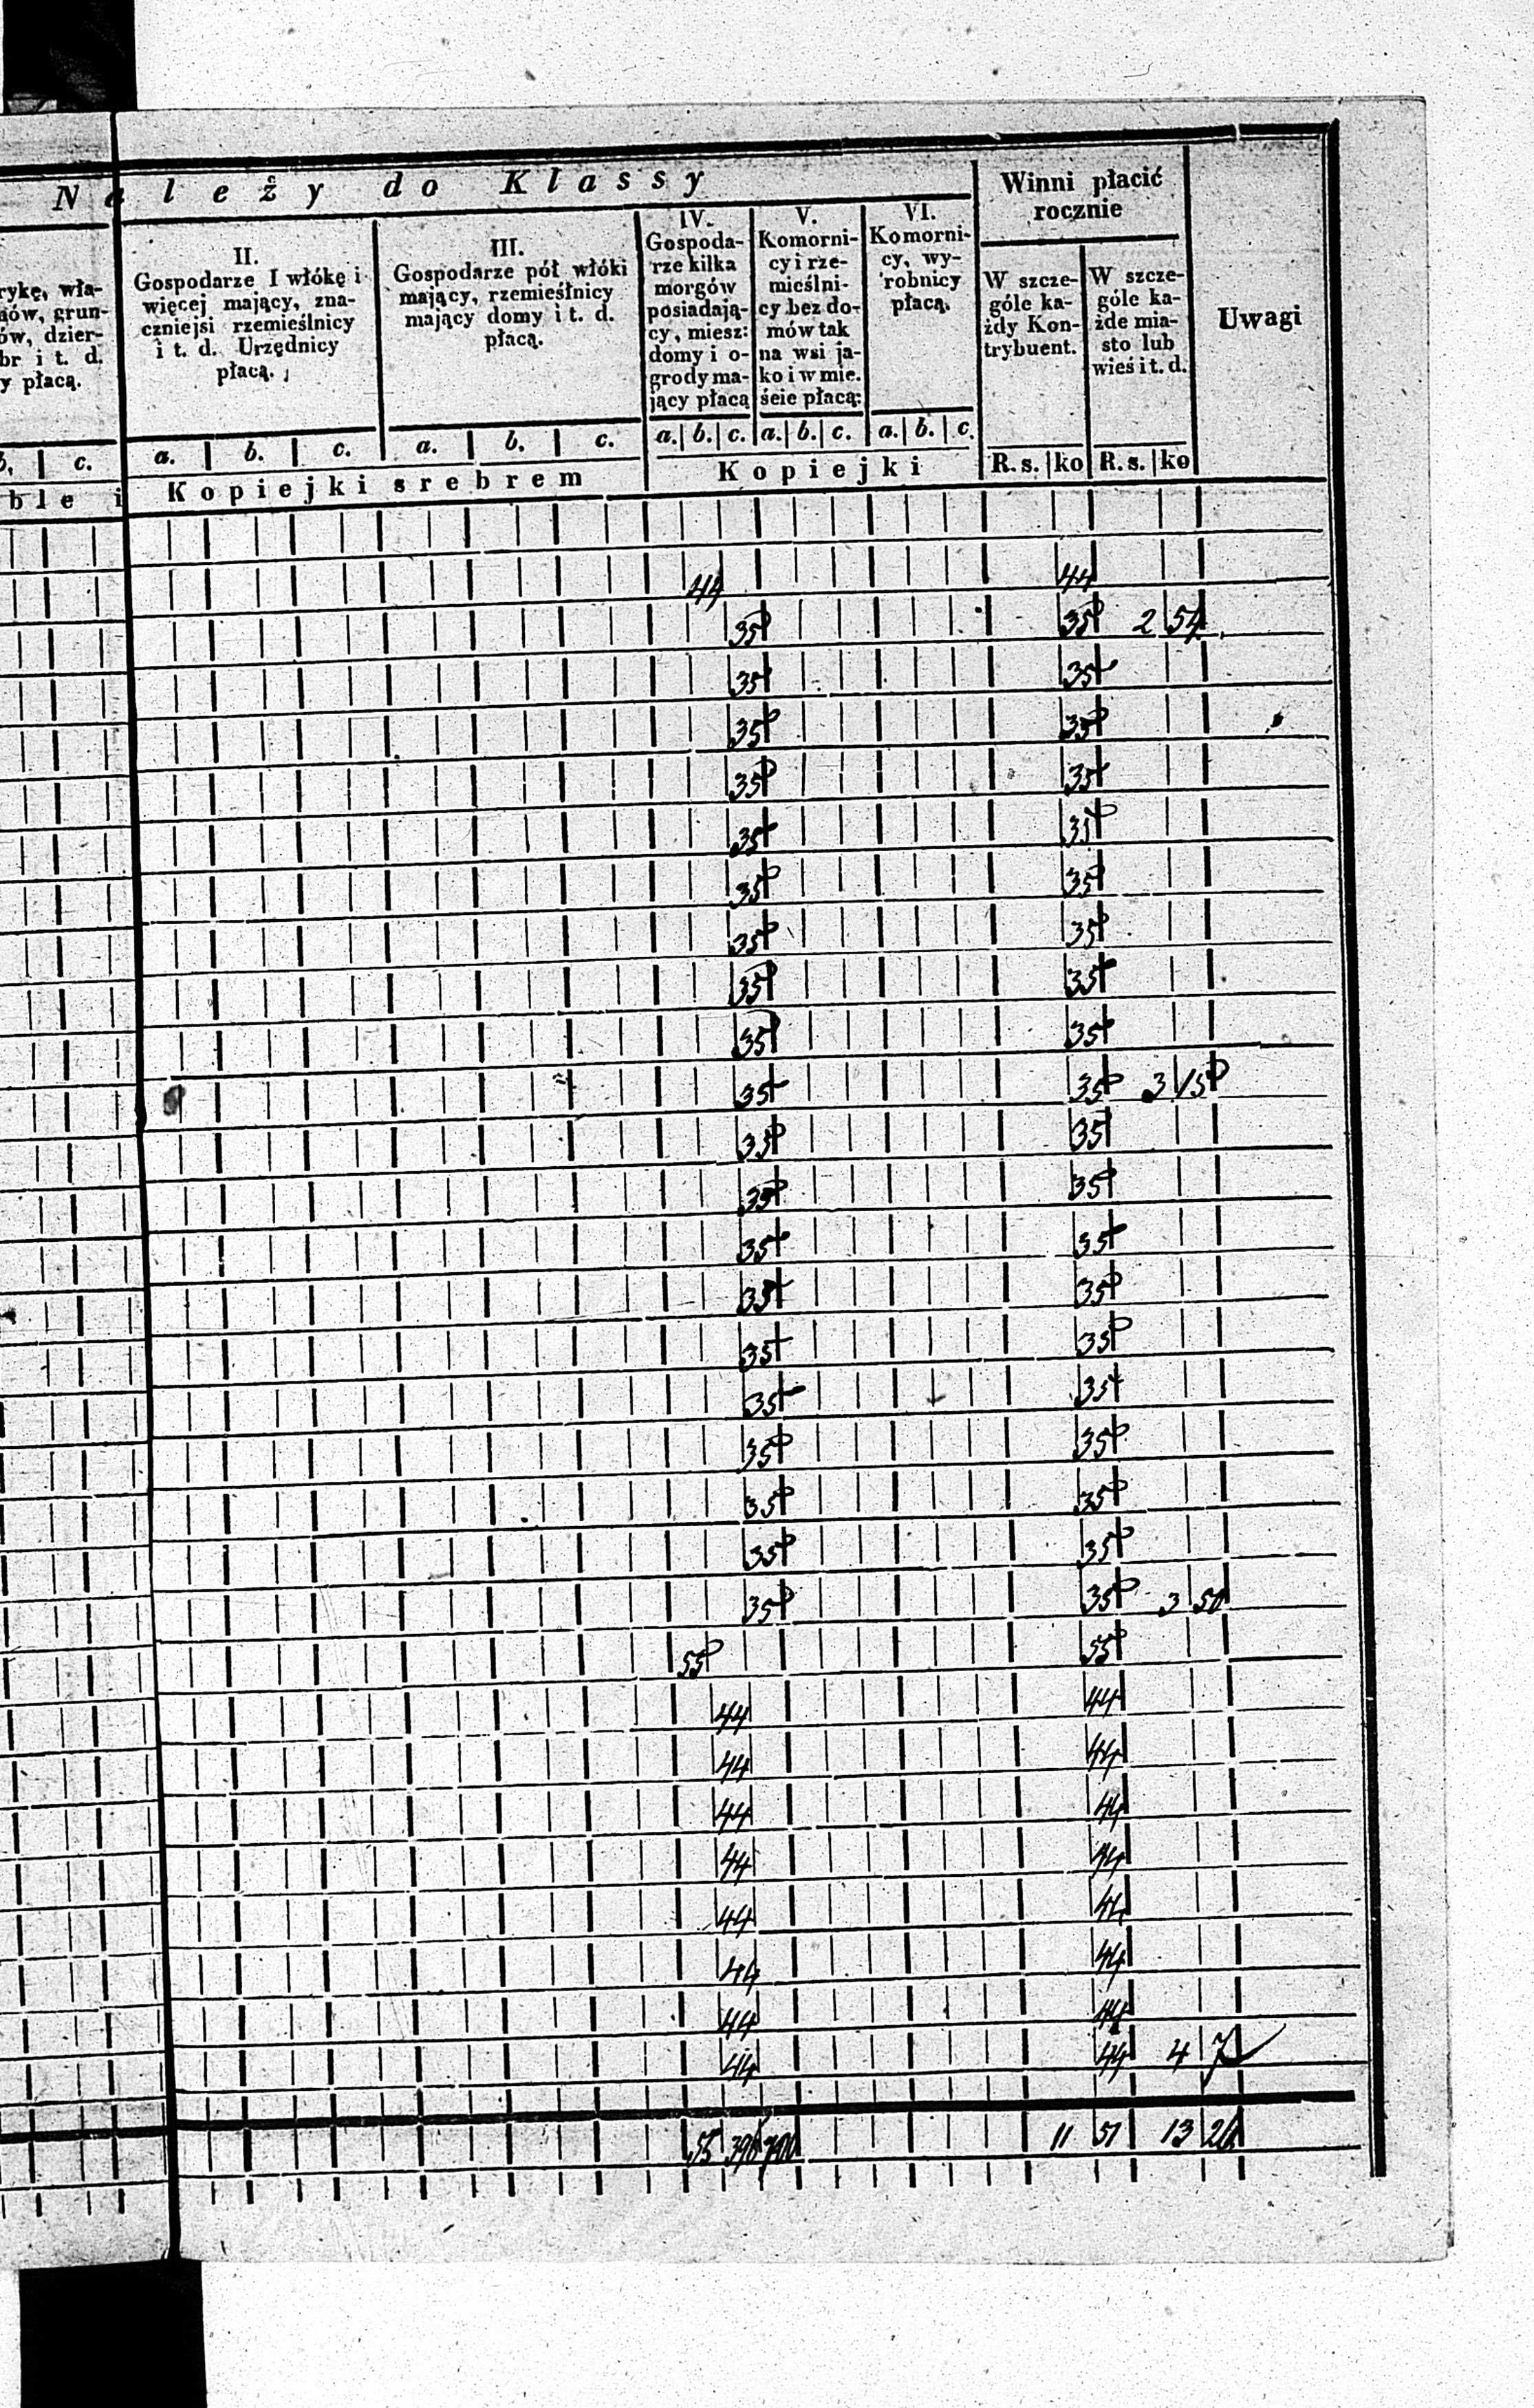 Należy do Klassy
Winni płacić
rocznie
Uwagi
rykę, wła-
grun-
ów, dzier-
br i t. d.
y płacą.
II.
Gospodarze I włókę i
więcej mający, zna-
czniejsi rzemieślnicy
i t. d. Urzędnicy
płacą.
III.
Gospodarze pół włóki
mający, rzemieślnicy
mający domy i t. d.
płacą.
IV.
Gospoda-
rze kilka
morgów
posiadają-
cy, miesz:
domy i o-
grody ma-
jący płacą
V.
Komorni-
cy i rze-
mieślni-
cy bez do-
mów tak
na wsi ja-
ko i w mie.
ście płacą:
VI.
Komorni-
cy, wy-
robnicy
płacą.
W szcze-
góle ka-
żdy Kon-
trybuent.
W szcze-
góle ka-
żde mia-
sto lub
wieś i t. d.
b. c. a. b. c. a. b. c. a. b. c. a. b. c. a. b. c.
R. s. ko R. s. ko
ble i Kopiejki srebrem Kopiejki
44 44
35 35 2 54
35 35
35 35
35 35
35 35
35 35
35 35
35 35
35 35
35 35 3 15
35 35
35 35
35 35
35 35
35 35
35 35
35 35
35 35
35 35
35 35 3 50
55 55
44 44
44 44
44 44
44 44
44 44
44 44
44 44
44 44 4 7
55 396 700 11 51 13 26